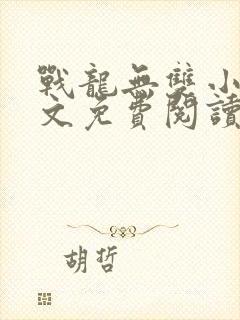 戰龍無雙小
文免費閱讀
胡哲